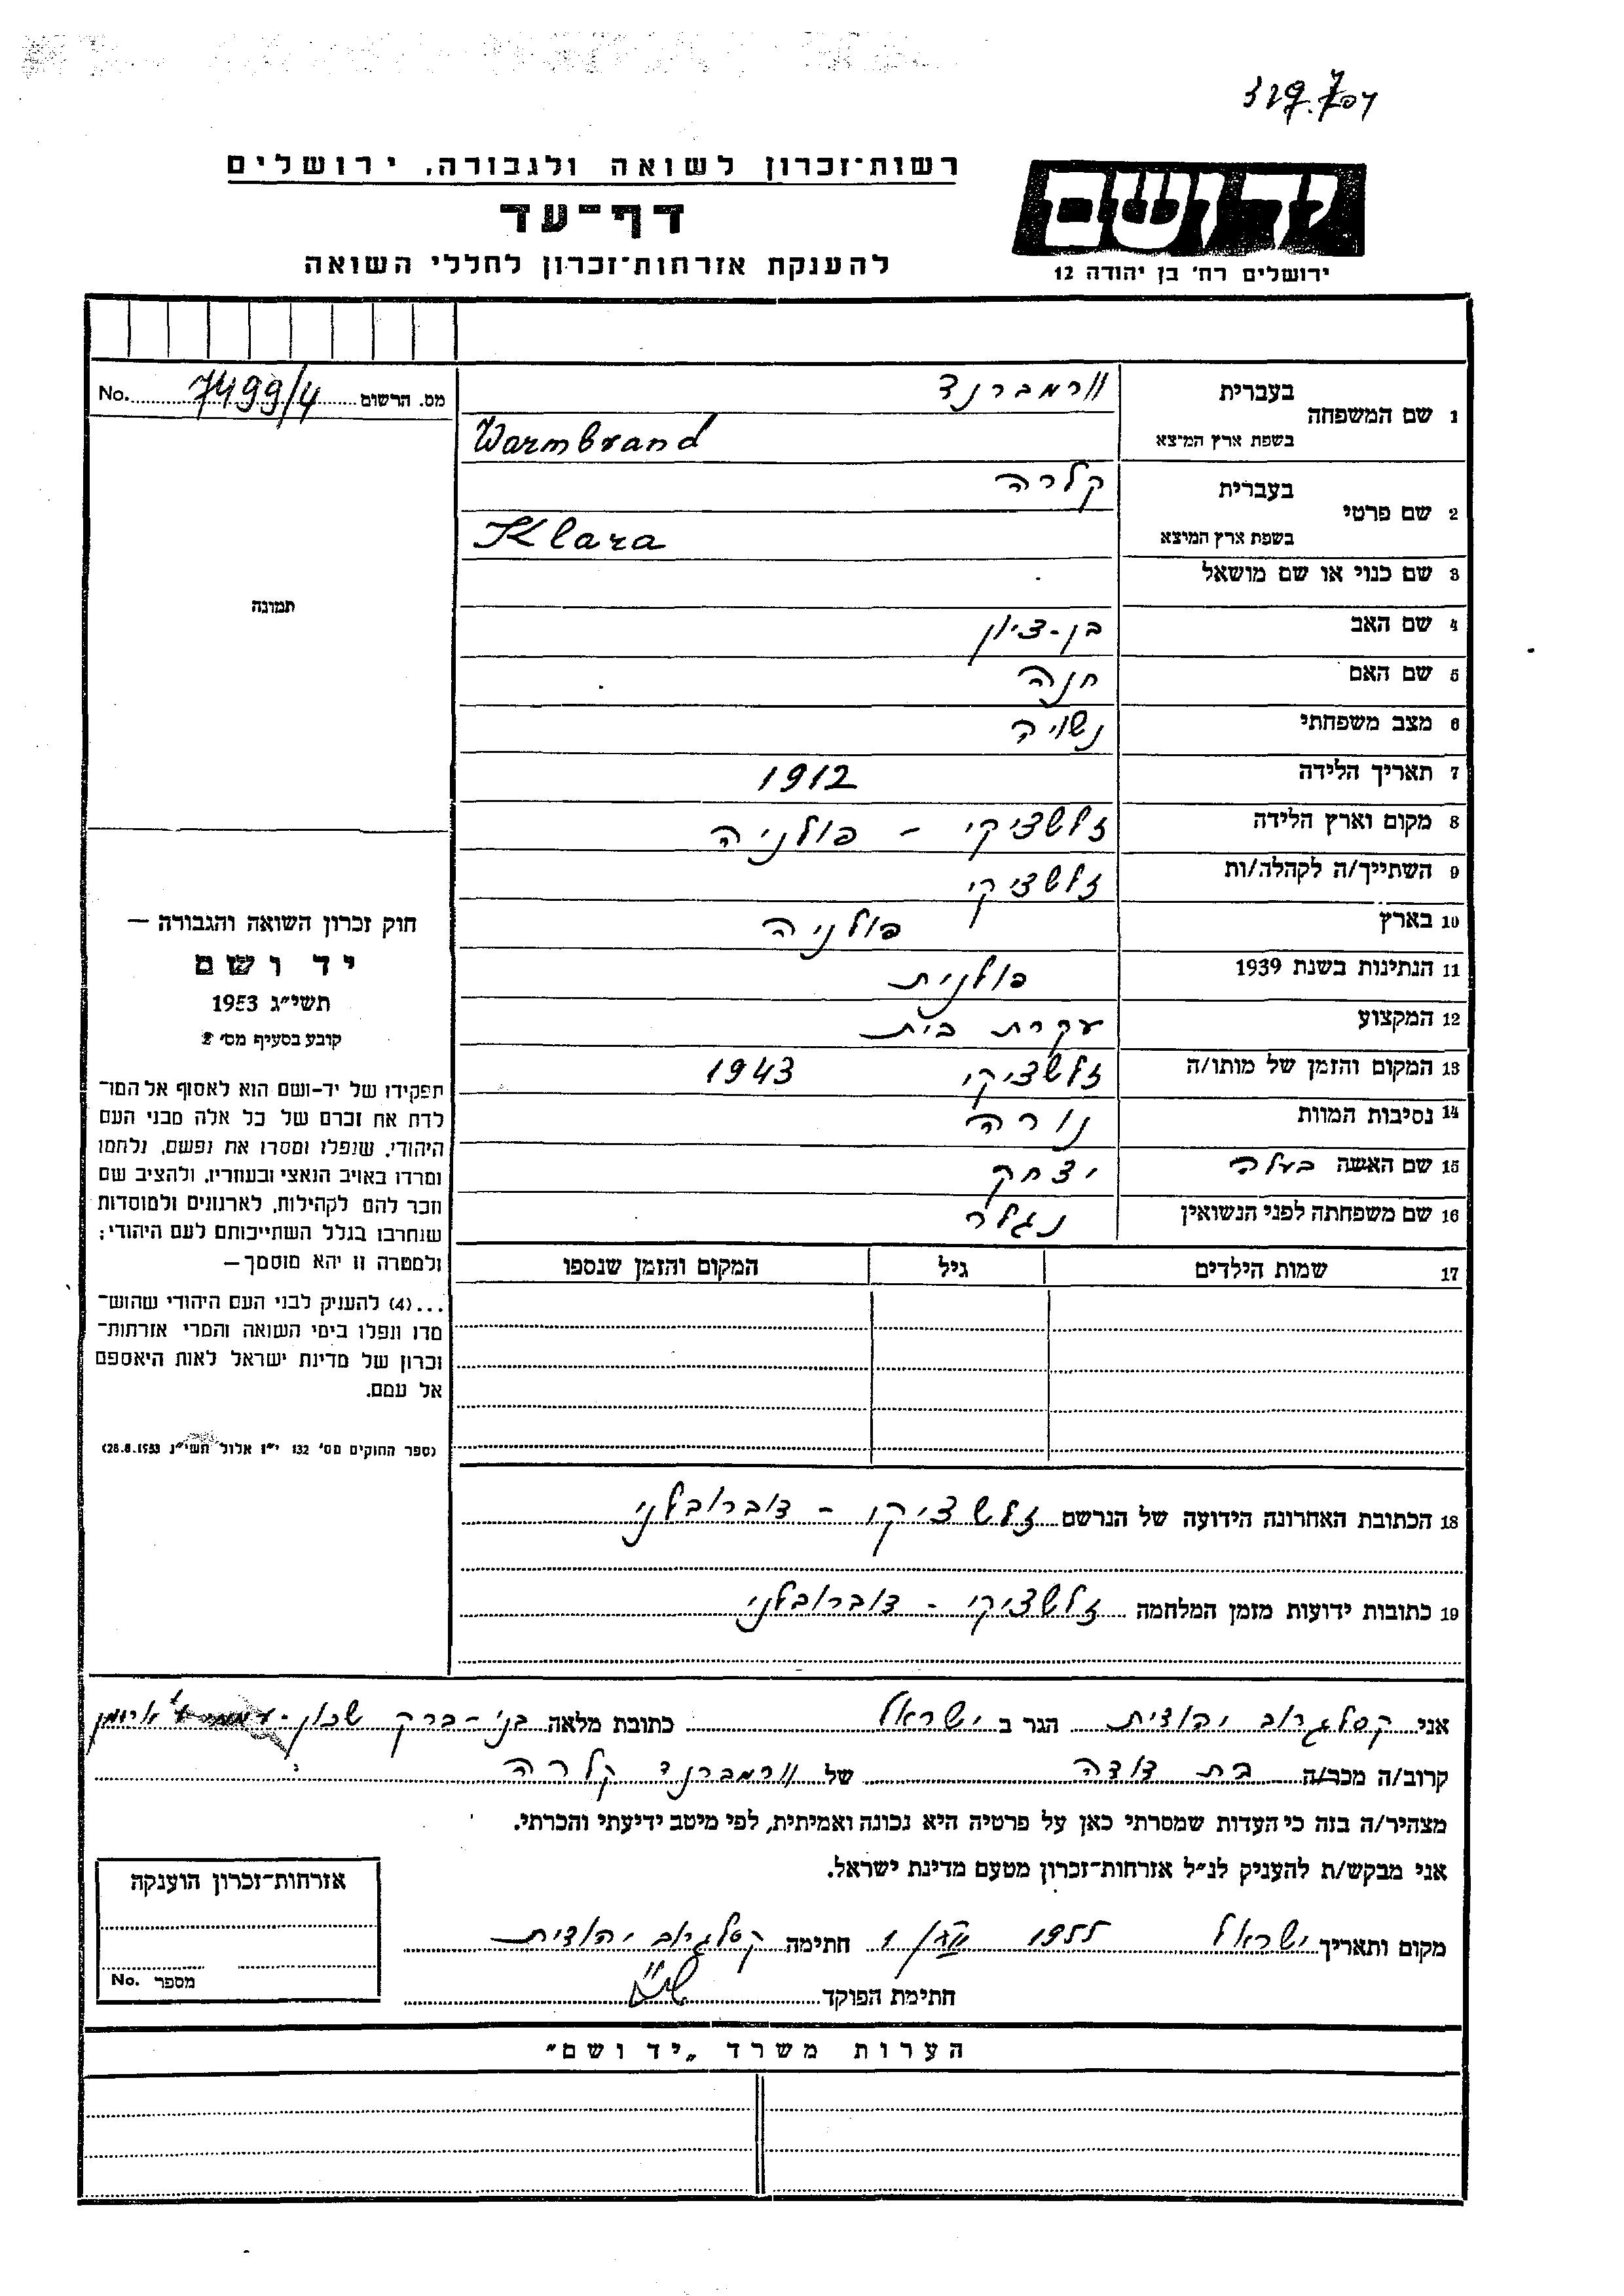 רשות־זכרון לשואה ולגבורה, ירושלים
דף־עד
להענקת אזרחות־זכרון לחללי השואה
יד ושם
ירושלים רח׳ בן יהודה 12
מס. הרשום 7499/4 No.
1 שם המשפחה
בעברית וורמברנד
בשפת ארץ המיצא Warmbrand
2 שם פרטי
בעברית קלרה
בשפת ארץ המיצא Klara
3 שם כנוי או שם מושאל
4 שם האב בן-ציון
5 שם האם חנה
6 מצב משפחתי נשויה
7 תאריך הלידה 1912
8 מקום וארץ הלידה זלשציקי - פולניה
9 השתייך/ה לקהלה/ות זלשציקי
10 בארץ פולניה
11 הנתינות בשנת 1939 פולנית
12 המקצוע עקרת בית
13 המקום והזמן של מותו/ה זלשציקי 1943
14 נסיבות המוות נורה
15 שם האשה בעלה יצחק
16 שם משפחתה לפני הנשואין נגלר
17 שמות הילדים גיל המקום והזמן שנספו
18 הכתובת האחרונה הידועה של הנרשם זלשציקי - דוברובלני
19 כתובות ידועות מזמן המלחמה זלשציקי - דוברובלני
תמונה
חוק זכרון השואה והגבורה —
יד ושם
תשי״ג 1953
קובע בסעיף מס׳ 2
תפקידו של יד-ושם הוא לאסוף אל המו־
לדת את זכרם של כל אלה מבני העם
היהודי, שנפלו ומסרו את נפשם, נלחמו
ומרדו באויב הנאצי ובעוזריו, ולהציב שם
וזכר להם לקהילות, לארגונים ולמוסדות
שנחרבו בגלל השתייכותם לעם היהודי;
ולמטרה זו יהא מוסמך —
...(4) להעניק לבני העם היהודי שהוש־
מדו ונפלו בימי השואה והמרי אזרחות־
זכרון של מדינת ישראל לאות היאספם
אל עמם.
(ספר החוקים מס׳ 132 י״ז אלול תשי״ג 28.8.1953)
אני קסלגרוב יהודית הגר ב ישראל כתובת מלאה בני-ברק שכון
קרוב/ה מכר/ה בת דודה של וורמברנד קלרה
מצהיר/ה בזה כי העדות שמסרתי כאן על פרטיה היא נכונה ואמיתית, לפי מיטב ידיעתי והכרתי.
אני מבקש/ת להעניק לנ״ל אזרחות־זכרון מטעם מדינת ישראל.
מקום ותאריך ישראל 1955 חתימה קסלגרוב יהודית
חתימת הפוקד
אזרחות־זכרון הוענקה
מספר No.
הערות משרד „יד ושם״